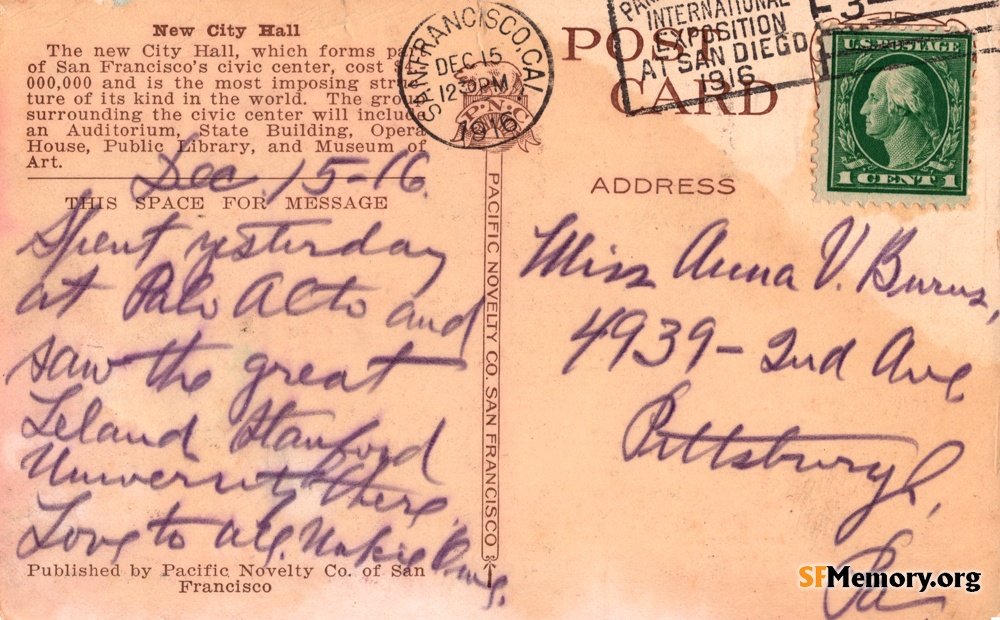 New City Hall
The new City Hall, which forms pa
of San Francisco's civic center, cost
000,000 and is the most imposing stru
ture of its kind in the world. The grou
surrounding the civic center will includ
an Auditorium, State Building, Opera
House, Public Library, and Museum of
Art.
Dec. 15-16.
THIS SPACE FOR MESSAGE
Spent yesterday
at Palo Alto and
saw the great
Leland Stanford
University there.
Love to all.
Published by Pacific Novelty Co. of San
Francisco
SAN FRANCISCO, CAL.
DEC 15
12 PM
1916
P.N.C.
PACIFIC NOVELTY CO. SAN FRANCISCO
INTERNATIONAL
EXPOSITION
AT SAN DIEGO
1916
POST
CARD
U.S. POSTAGE
1 CENT 1
ADDRESS
Miss Anna V. Burns,
4939 - 2nd Ave
Pittsburgh,
Pa
SFMemory.org